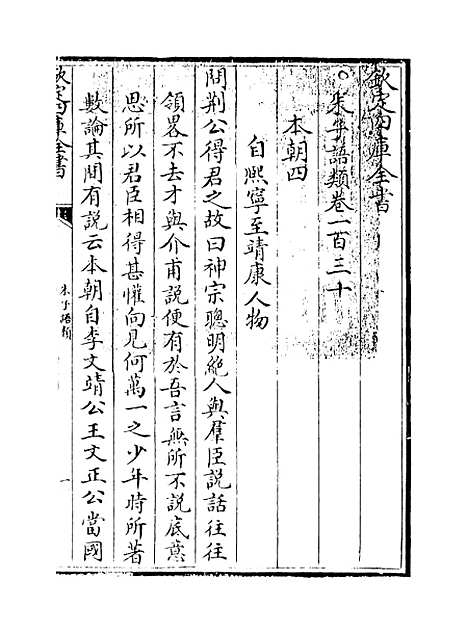 欽定四庫全書
朱子語類卷一百三十
本朝四
自熙寧至靖康人物
問荆公得君之故曰神宗聰明絶人與羣臣說話往往
領畧不去才與介甫說便有於吾言無所不說底意
思所以君臣相得甚懽向見何萬一之少年時所著
數論其間有說云本朝自李文靖公王文正公當國
欽定四庫全書
朱子語類
一